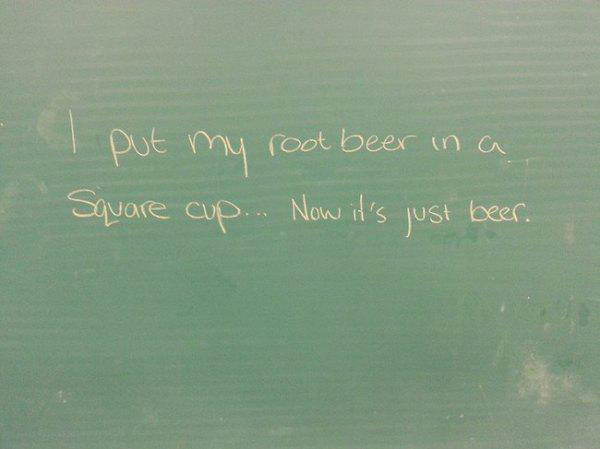 I put my root beer in a
Square cup... Now it's just beer.